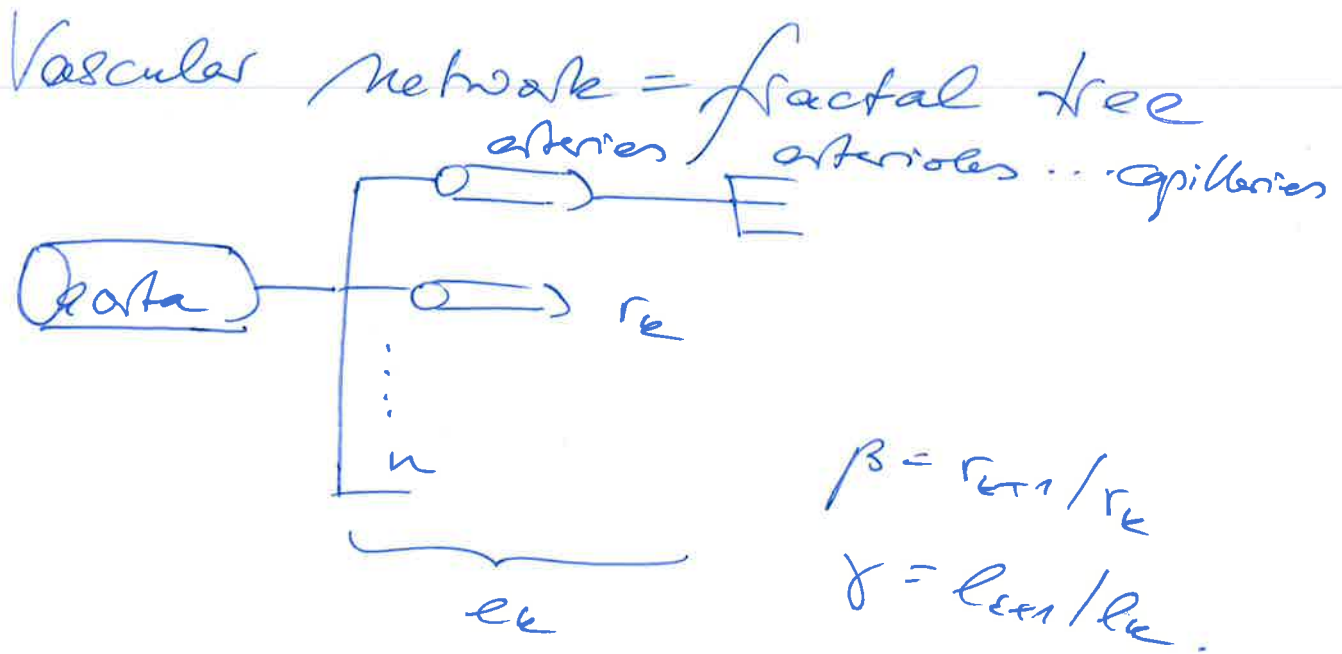 Vascular network = fractal tree
arteries arterioles ... capillaries
aorta
r_k
n
β = r_{k+1}/r_k
l_k
γ = l_{k+1}/l_k.